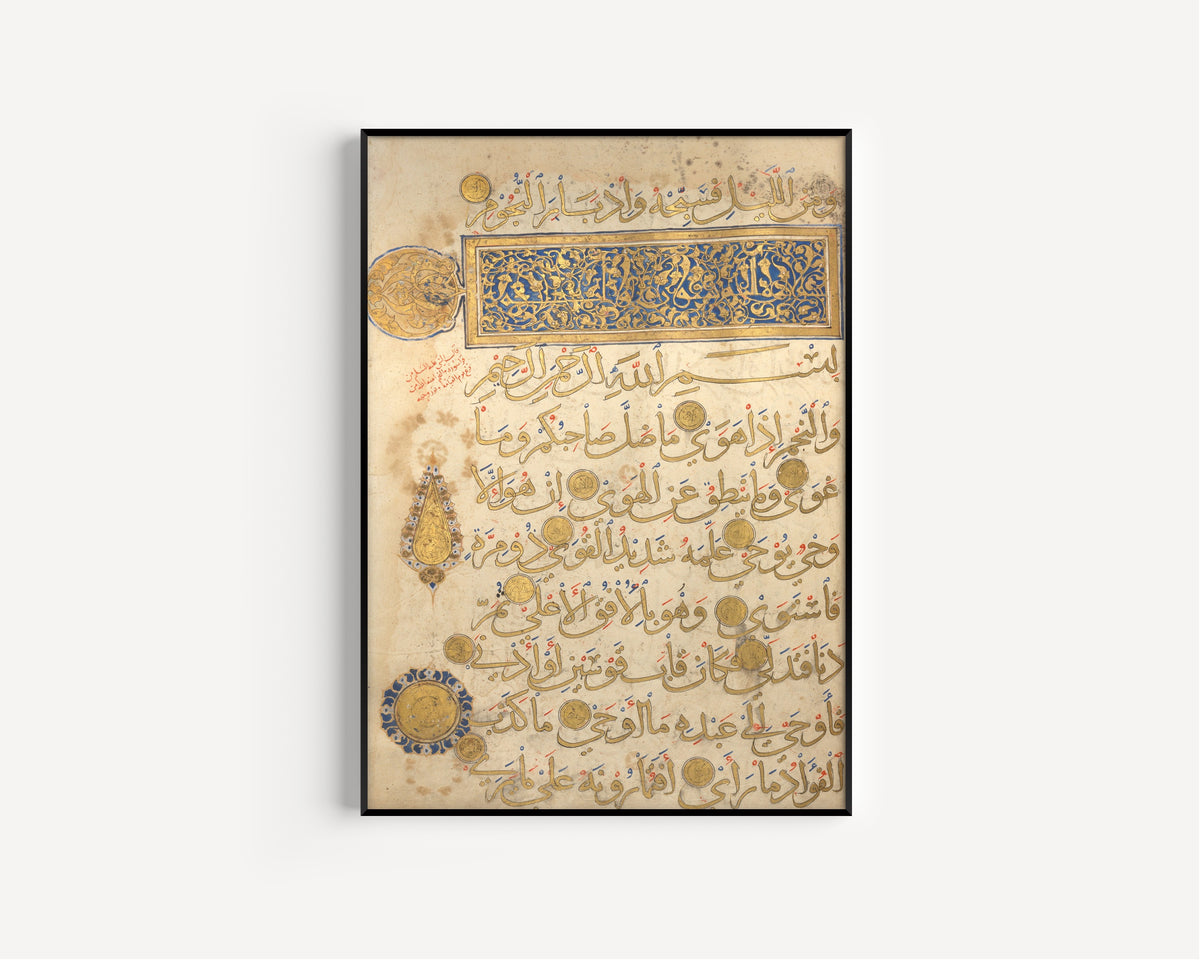 وَمِنَ اللَّيْلِ فَسَبِّحْهُ وَإِدْبَارَ النُّجُومِ
بِسْمِ اللَّهِ الرَّحْمَٰنِ الرَّحِيمِ
وَالنَّجْمِ إِذَا هَوَىٰ مَا ضَلَّ صَاحِبُكُمْ وَمَا
غَوَىٰ وَمَا يَنْطِقُ عَنِ الْهَوَىٰ إِنْ هُوَ إِلَّا
وَحْيٌ يُوحَىٰ عَلَّمَهُ شَدِيدُ الْقُوَىٰ ذُو مِرَّةٍ
فَاسْتَوَىٰ وَهُوَ بِالْأُفُقِ الْأَعْلَىٰ ثُمَّ
دَنَا فَتَدَلَّىٰ فَكَانَ قَابَ قَوْسَيْنِ أَوْ أَدْنَىٰ
فَأَوْحَىٰ إِلَىٰ عَبْدِهِ مَا أَوْحَىٰ مَا كَذَبَ
الْفُؤَادُ مَا رَأَىٰ أَفَتُمَارُونَهُ عَلَىٰ مَا يَرَىٰ